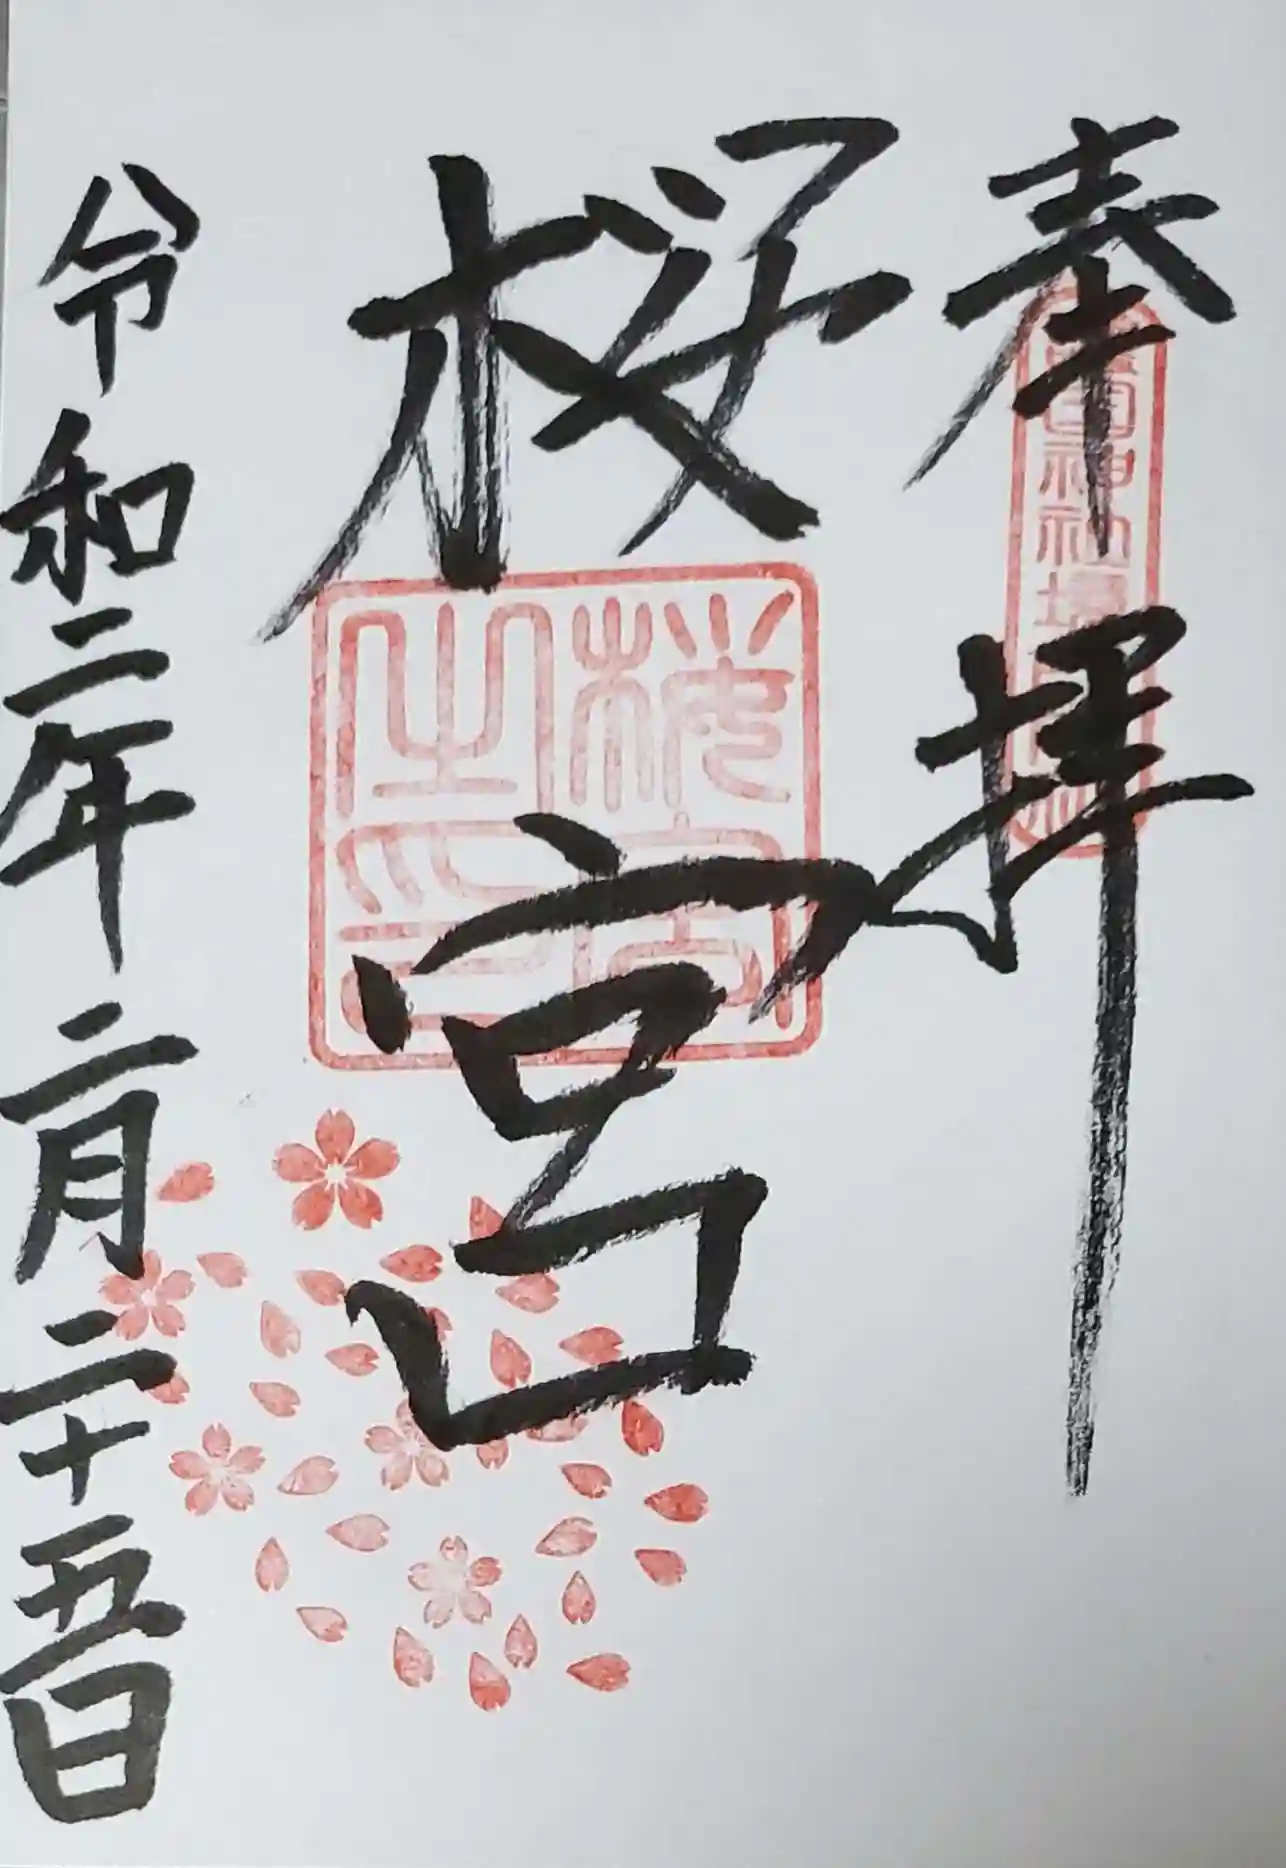 奉拝
桜宮
桜宮之印
令和二年二月二十五日